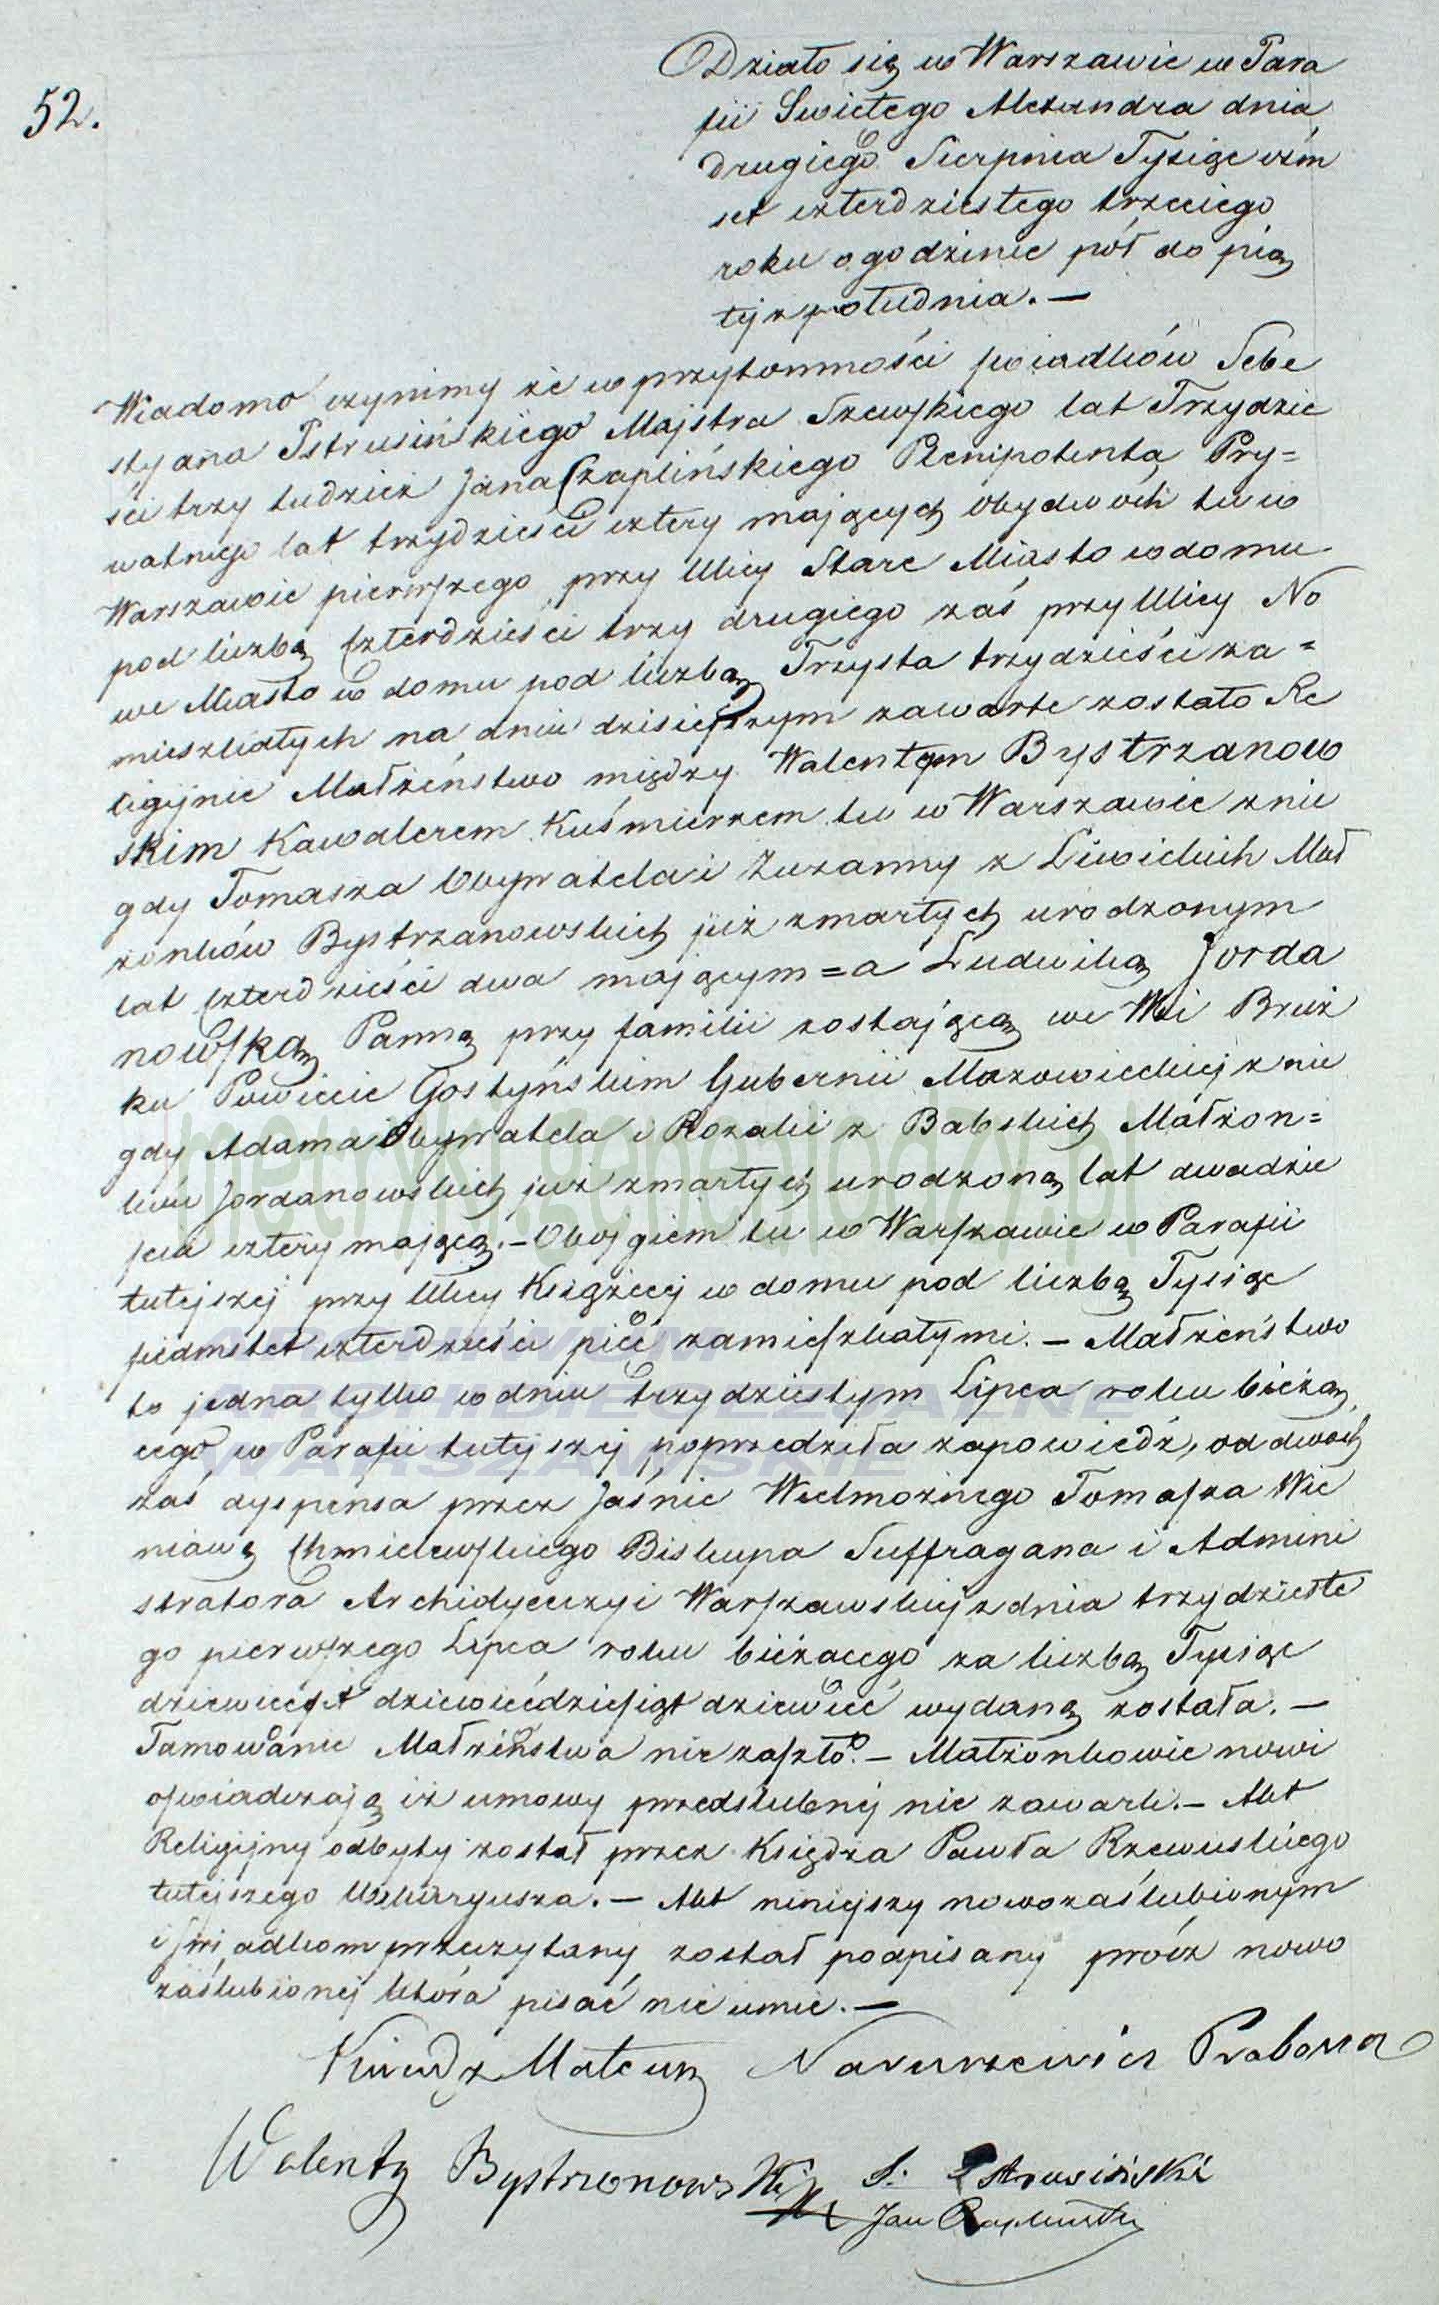 52.
Działo się w Warszawie w Para
fii Swiętego Alexandra dnia
drugiego Sierpnia Tysiąc ośm
set czterdziestego trzeciego
roku o godzinie pół do pią
téj z południa. —
Wiadomo czynimy że w przytomności świadków Seba
styana Pstrusińskiego Majstra Szewskiego lat Trzydzie
ści trzy tudzież Jana Czaplińskiego Plenipotenta Pry=
watnego lat trzydzieści cztery mających Obydwóch tu w
Warszawie pierwszego przy Ulicy Stare Miasto w domu
pod liczbą Czterdzieści trzy drugiego zaś przy Ulicy No
we Miasto w domu pod liczbą Trzysta trzydzieści za=
mieszkałych na dniu dzisiejszym zawarte zostało Re
ligijne Małżeństwo między Walentym Bystrzanow
skim Kawalerem Kuśmierzem tu w Warszawie z nie
gdy Tomasza Obywatela i Zuzanny z Liwickich Mał
żonków Bystrzanowskich już zmarłych urodzonym
lat Czterdzieści dwa mającym =a Ludwiką Jorda
nowską Panną przy familii zostającą we Wsi Bruż
ku Powiecie Gostyńskim Gubernii Mazowieckiej z nie
gdy Adama Obywatela i Rozalii z Babskich Małżon=
ków Jordanowskich już zmarłych urodzoną lat dwadzie
ścia cztery mającą. — Obojgiem tu w Warszawie w Parafii
tutejszej przy Ulicy Książęcej w domu pod liczbą Tysiąc
siedmset czterdzieści pięć zamieszkałymi. — Małżeństwo
to jedna tylko w dniu trzydziestym Lipca roku bieżą
cego w Parafii tutejszej poprzedziła zapowiedź, od dwóch
zaś dyspensa przez Jaśnie Wielmożnego Tomasza Wie
niawę Chmielewskiego Biskupa Suffragana i Admini
stratora Archidyecezyi Warszawskiej z dnia trzydzieste
go pierwszego Lipca roku bieżącego za liczbą Tysiąc
dziewięćset dziewięćdziesiąt dziewięć wydaną została. —
Tamowanie Małżeństwa nie zaszło. — Małżonkowie nowi
oświadczają iż umowy przedślubnej nie zawarli. — Akt
Religijny odbyty został przez Księdza Pawła Rzewuskiego
tutejszego Wikaryusza. — Akt niniejszy nowozaślubionym
i świadkom przeczytany został podpisany prócz nowo
zaślubionej która pisać nie umie. —
Ksiądz Mateusz Naruszewicz Proboszcz
Walenty Bystrzonowski S. Pstrusiński
Jan Czapliński
metryki.genealodzy.pl
ARCHIWUM
ARCHIDIECEZJALNE
WARSZAWSKIE